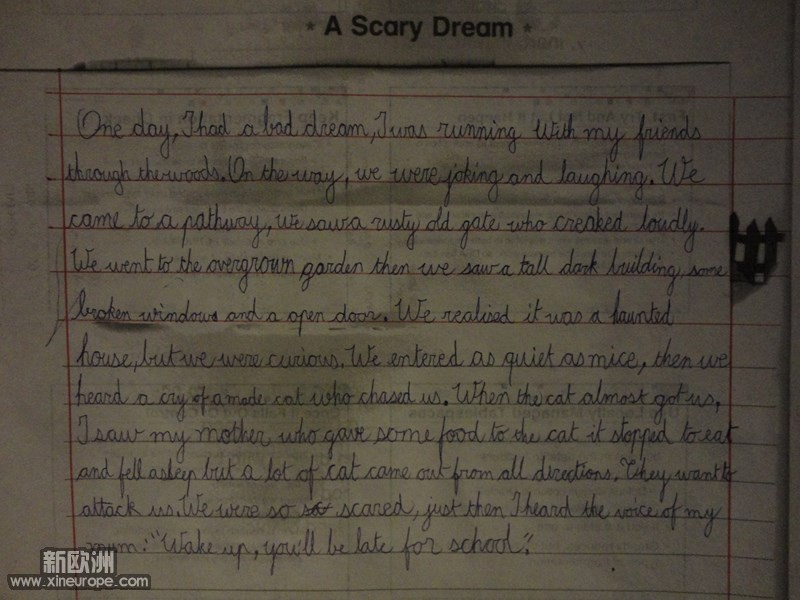 * A Scary Dream *
One day, I had a bad dream, I was running with my friends
through the woods. On the way, we were joking and laughing. We
came to a pathway, we saw a rusty old gate who creaked loudly.
We went to the overgrown garden then we saw a tall dark building, some
broken windows and a open door. We realised it was a haunted
house, but we were curious. We entered as quiet as mice, then we
heard a cry of a made cat who chased us. When the cat almost got us,
I saw my mother who gave some food to the cat it stopped to eat
and fell asleep but a lot of cat came out from all directions. They want to
attack us. We were so scared, just then I heard the voice of my
mum: "Wake up, you'll be late for school".
新欧洲
www.xineurope.com